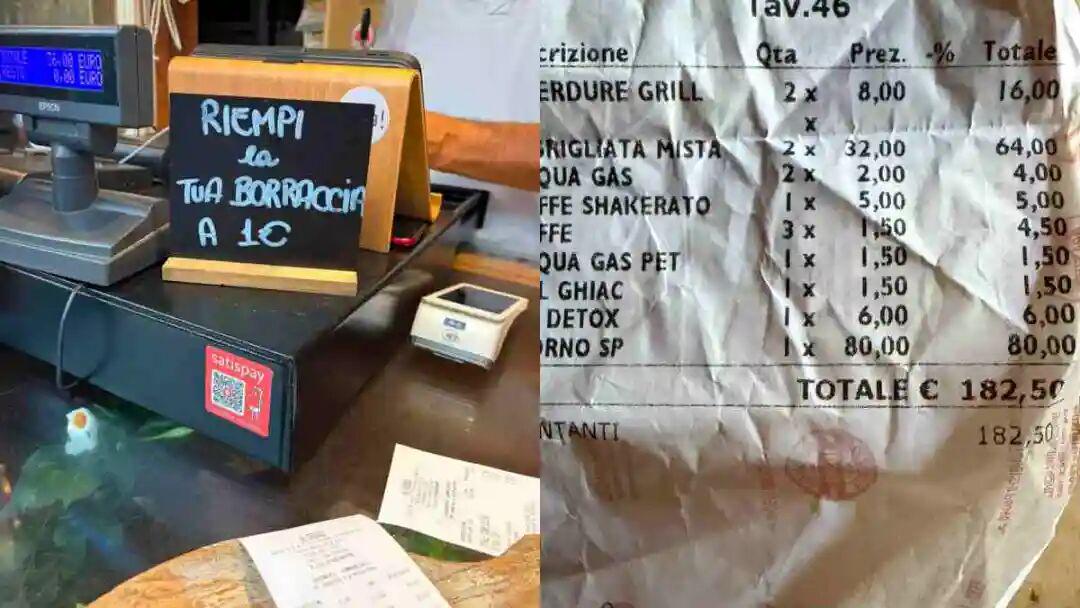 TOTALE 36,00 EURO
RESTO 0,00 EURO
EPSON
RIEMPI
la
TUA BORRACCIA
A 1€
satispay
Tav.46
crizione Qta Prez. -% Totale
ERDURE GRILL 2 x 8,00 16,00
x
RIGLIATA MISTA 2 x 32,00 64,00
QUA GAS 2 x 2,00 4,00
FFE SHAKERATO 1 x 5,00 5,00
FFE 3 x 1,50 4,50
QUA GAS PET 1 x 1,50 1,50
L GHIAC 1 x 1,50 1,50
DETOX 1 x 6,00 6,00
ORNO SP 1 x 80,00 80,00
TOTALE € 182,50
NTANTI 182,50